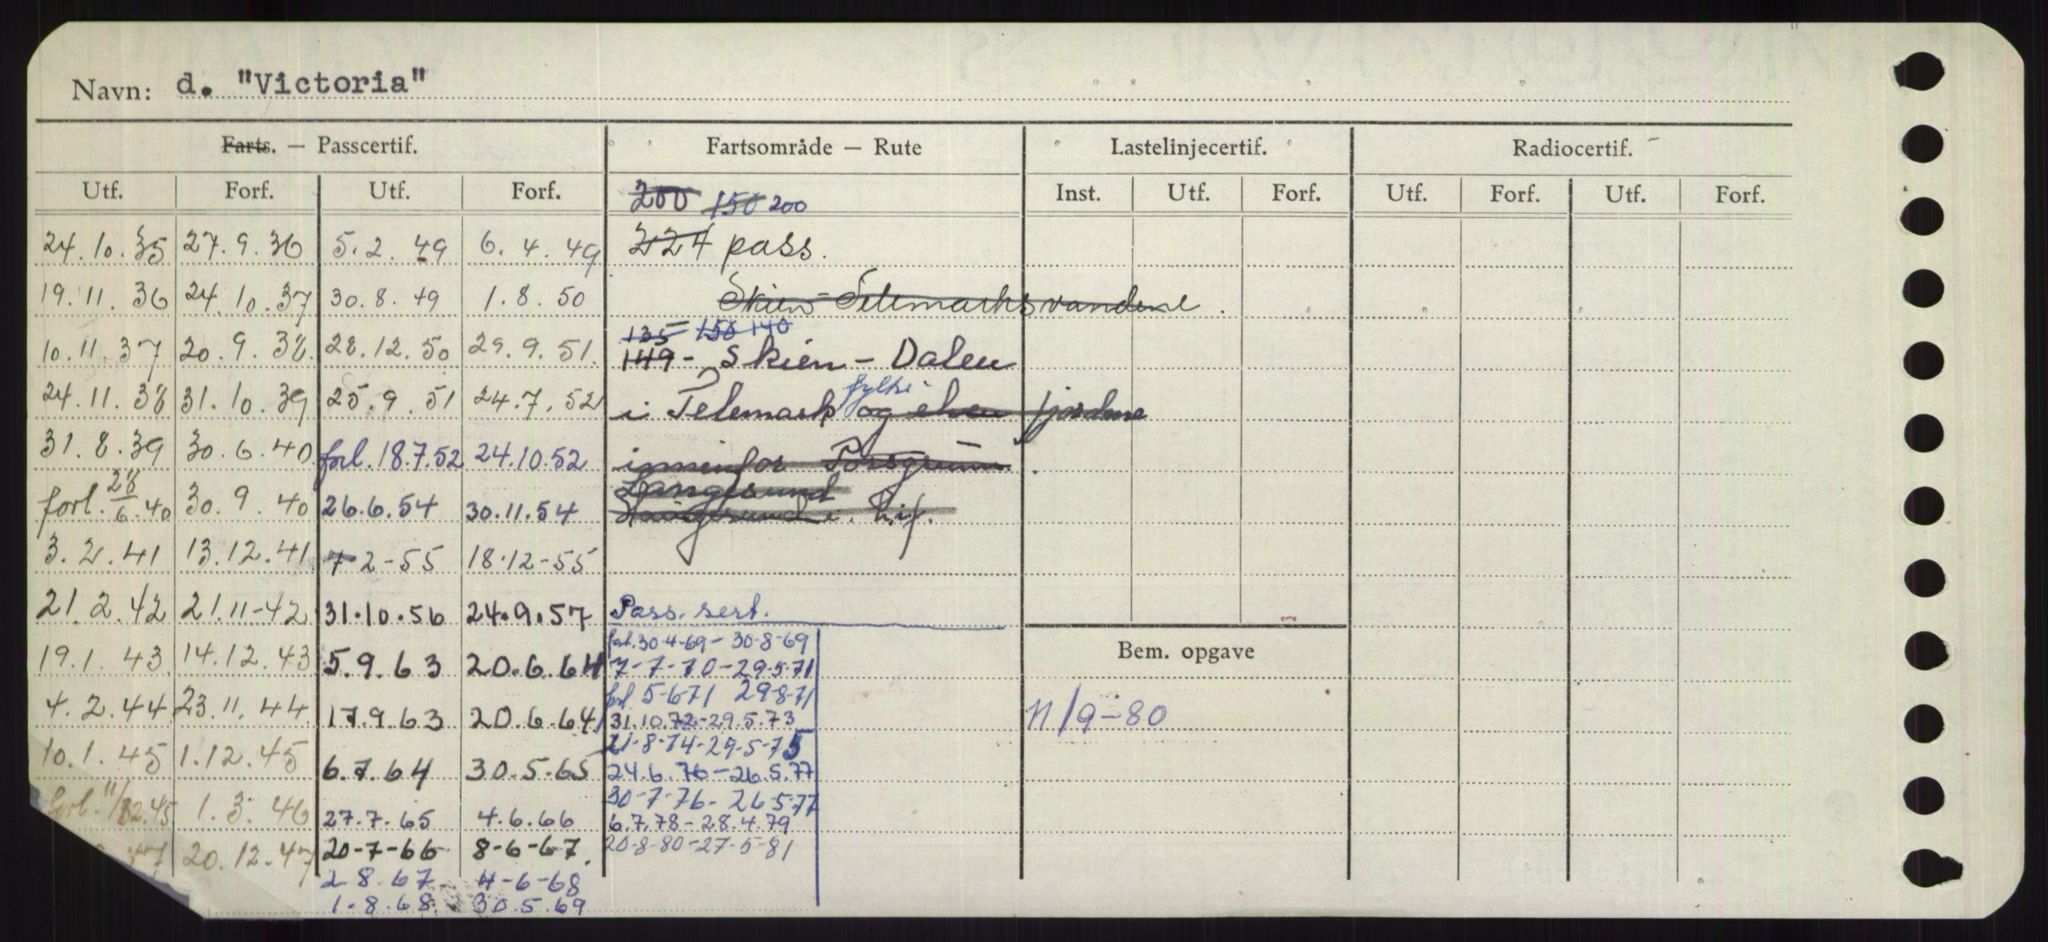 Navn: d. "Victoria"
Farts. — Passcertif. Fartsområde — Rute Lastelinjecertif. Radiocertif.
Utf. Forf. Utf. Forf. 200 150 200 Inst. Utf. Forf. Utf. Forf. Utf. Forf.
24.10.35 27.9.36 5.2.49 6.4.49 224 pass.
19.11.36 24.10.37 30.8.49 1.8.50 Skien-Telemarksvandene.
135 150 140
10.11.37 20.9.38. 28.12.50 29.9.51. 149- Skien - Dalen
fylke
24.11.38 31.10.39 25.9.51 24.7.52 i Telemark og elven fjordene
31.8.39 30.6.40 forl. 18.7.52 24.10.52 innenfor Porsgrunn.
Langesund
forl. 28/6.40 30.9.40 26.6.54 30.11.54
3.2.41 13.12.41. 7-2-55 18-12-55
21.2.42 21.11-42 31.10.56 24.9.57 Pass. sert.
forl. 30-4-69 - 30-8-69
19.1.43 14.12.43 5.9.63 20.6.64 7-7-70-29-5-71
Bem. opgave
forl 5-6-71 29-8-71
4.2.44 23.11.44 17.9.63 20.6.64 31.10.72-29.5.73
11/9-80
21-8-74-29-5-75
10.1.45 1.12.45 6.7.64 30.5.65 24.6.76-26.5.77
30-7-76-26-5-77
forl. 11/12.45 1.3.46 27.7.65 4.6.66 6.7.78-28.4.79
47 20.12.47 20-7-66 8-6-67. 20-8-80-27-5-81
2.8.67 4-6-68
1.8.68. 30.5.69